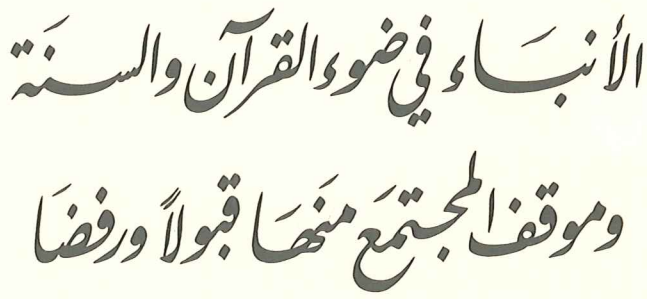 الأنبَاء في ضوء القرآن والسنَة
وموقف المجتمَع منهَا قبولاً ورفضَا